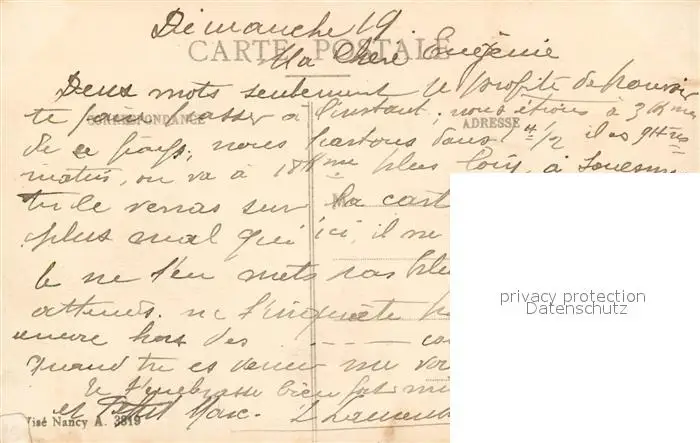 Dimanche 19
CARTE POSTALE
Ma Chère Eugénie
Deux mots seulement je profite de pouvoir
te passer à l'instant; nous étions à 3 Km
CORRESPONDANCE
ADRESSE
de ce pays; nous partons dans 1 H/2 il es 9 Hres
matin, on va à 18 Km plus loin, à
tu le verras sur la cart
plus mal qu'ici, il ne
Je ne t'en mets pas plu
attends. ne t'inquiète pa
encore hors des - - - - -
Quand tu es venue me vo
Je t'embrasse bien
et Petit Marc.
Visé Nancy A. 3819
privacy protection
Datenschutz